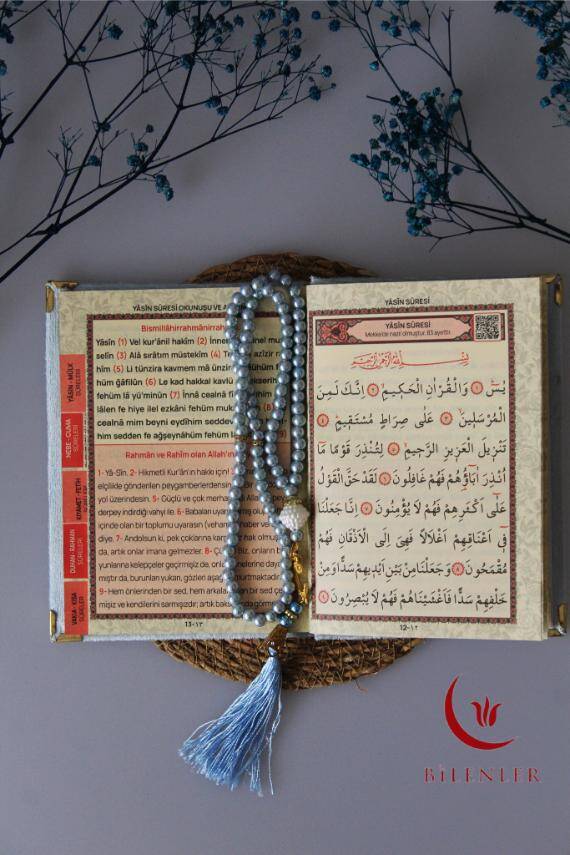 YÂSÎN SÛRESİ OKUNUŞU VE
Bismillâhirrahmânirrahî
Yâsîn (1) Vel kur'ânil hakîm (2) İnne mursel
selîn (3) Alâ sırâtım müstekîm (4) azîzir
hîm (5) Li tünzira kavmem mâ ünzir
hüm ğâfilûn (6) Le kad hakkal kavlü
fehüm lâ yü'minûn (7) İnnâ cealnâ
lâlen fe hiye ilel ezkâni fehüm
cealnâ mim beyni eydîhim sedde
him sedden fe ağşeynâhüm fehüm
Rahmân ve Rahîm olan Allah'ın
1- Yâ-Sîn. 2- Hikmetli Kur'an'ın hakkı için!
elçilikle gönderilen peygamberlerden
yol üzerindesin. 5- Güçlü ve çok merha
derpey indirdiği vahyi ile. 6- Babaları uyarılm
içinde olan bir toplumu uyarasın (vehamet haber ve
diye. 7- Andolsun ki, pek çoklarına karşı hak olmuş
da, artık onlar imana gelmezler. 8- Biz, onların b
yunlarına kelepçeler geçirmişiz de, onlar
mıştır da, burunları yukarı, gözleri aşağı durmaktadır
9- Hem önlerinden bir sed, hem arkala
mişiz ve kendilerini sarmışızdır; artık bak
13-١٣
YÂSÎN - MÜLK
SÛRELERİ
NEBE - CUMA
SÛRELERİ
KIYAMET - FETİH
DUHAN - RAHMAN
SÛRELERİ
VAKIA - KISA
SÛRELER
YÂSÎN SÛRESİ
YÂSÎN SÛRESİ
Mekke'de nazil olmuştur. 83 ayettir.
بِسْمِ اللّٰهِ الرَّحْمٰنِ الرَّح۪يمِ
يٰسٓ ﴿١﴾ وَالْقُرْاٰنِ الْحَك۪يمِ ﴿٢﴾ اِنَّكَ لَمِنَ
الْمُرْسَل۪ينَ ﴿٣﴾ عَلٰى صِرَاطٍ مُسْتَق۪يمٍ ﴿٤﴾
تَنْز۪يلَ الْعَز۪يزِ الرَّح۪يمِ ﴿٥﴾ لِتُنْذِرَ قَوْمًا مَٓا
اُنْذِرَ اٰبَٓاؤُ۬هُمْ فَهُمْ غَافِلُونَ ﴿٦﴾ لَقَدْ حَقَّ الْقَوْلُ
عَلٰٓى اَكْثَرِهِمْ فَهُمْ لَا يُؤْمِنُونَ ﴿٧﴾ اِنَّا جَعَلْنَا
ف۪ٓي اَعْنَاقِهِمْ اَغْلَالًا فَهِيَ اِلَى الْاَذْقَانِ فَهُمْ
مُقْمَحُونَ ﴿٨﴾ وَجَعَلْنَا مِنْ بَيْنِ اَيْد۪يهِمْ سَدًّا وَمِنْ
خَلْفِهِمْ سَدًّا فَاَغْشَيْنَاهُمْ فَهُمْ لَا يُبْصِرُونَ ﴿٩﴾
12-١٢
BİLENLER